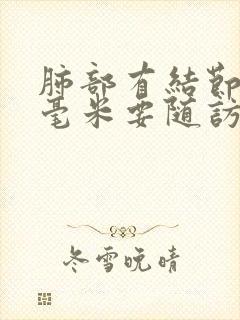 肺部有結節
毫米要随訪
冬雪晚晴